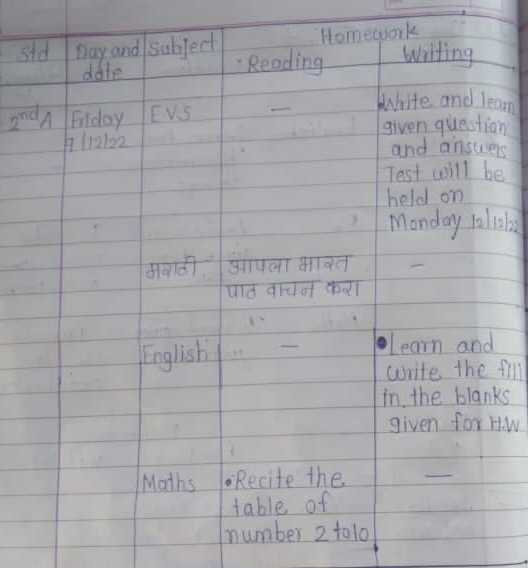 Homework
Std Day and Subject Reading Writing
date
2nd A Friday E.V.S — Write and learn
/12/22 given question
and answers
Test will be
held on
Monday 12/12/22
मराठी आपला भारत —
पाठ वाचन करा
English — • Learn and
write the fill
in the blanks
given for H.W
Maths • Recite the —
table of
number 2 to 10